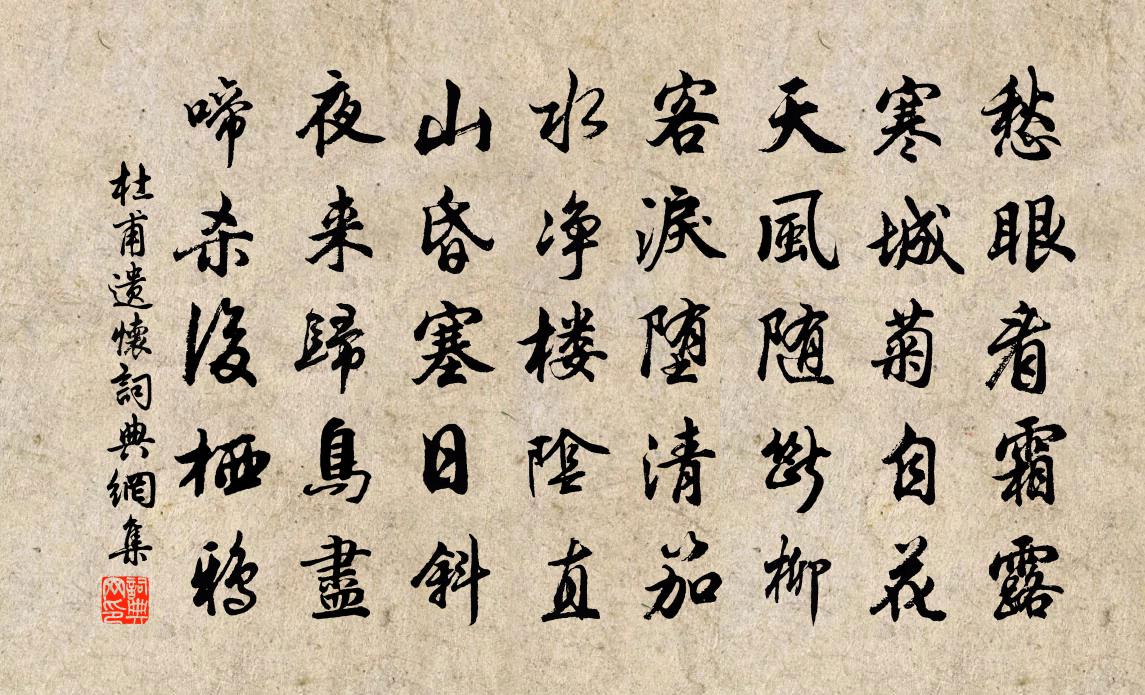 愁眼看霜露
寒城菊自花
天風随斷柳
客淚堕清笳
水净楼陰直
山昏塞日斜
夜来歸鳥盡
啼杀後栖鴉
杜甫遣懷詞典網集
詞典网印